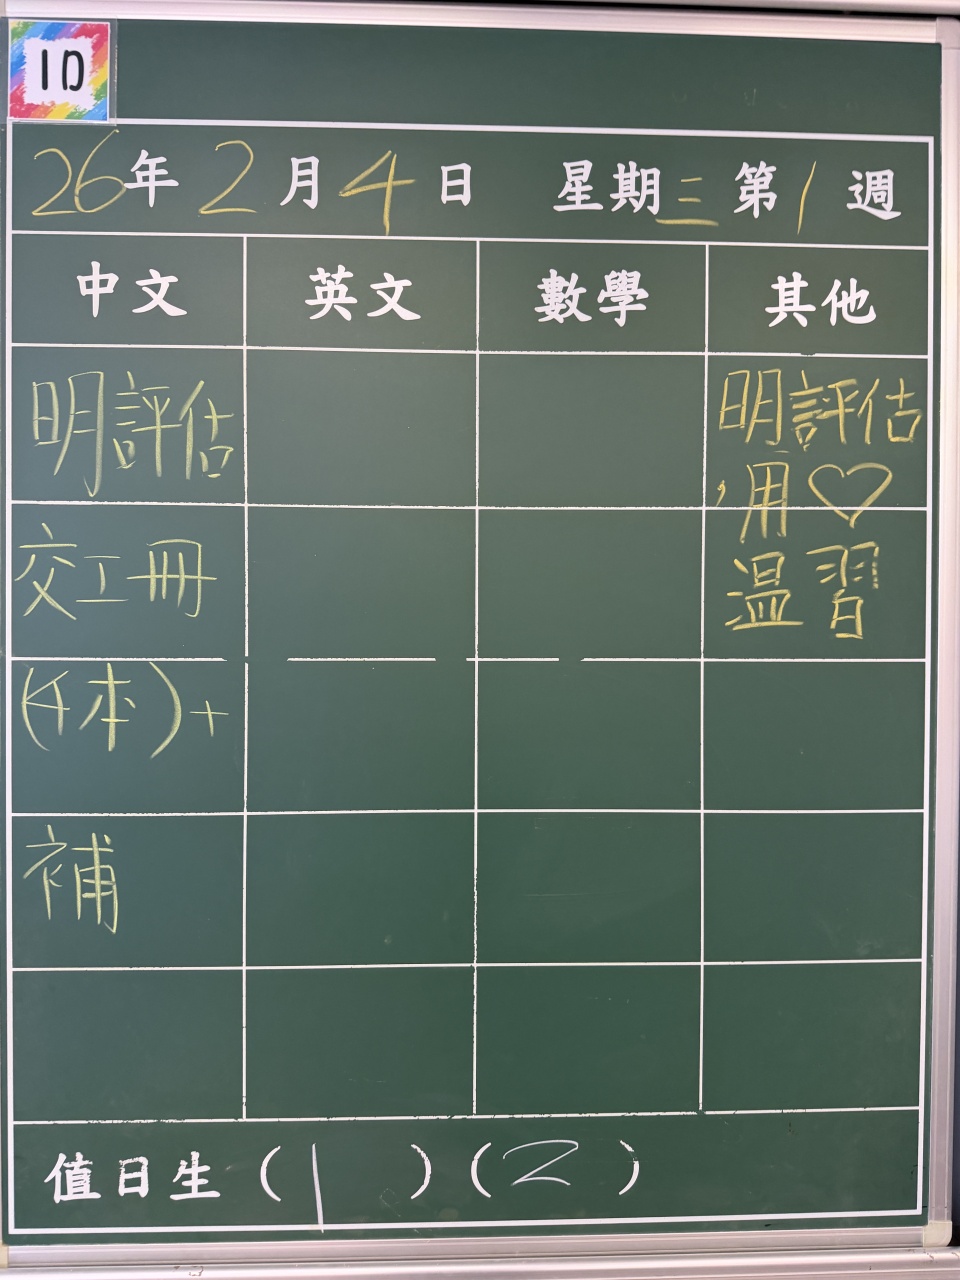 1D
26年2月4日 星期三 第1週
中文 英文 數學 其他
明評估
交工冊
(4本)+
補
明評估
,用♡
温習
值日生(1)(2)